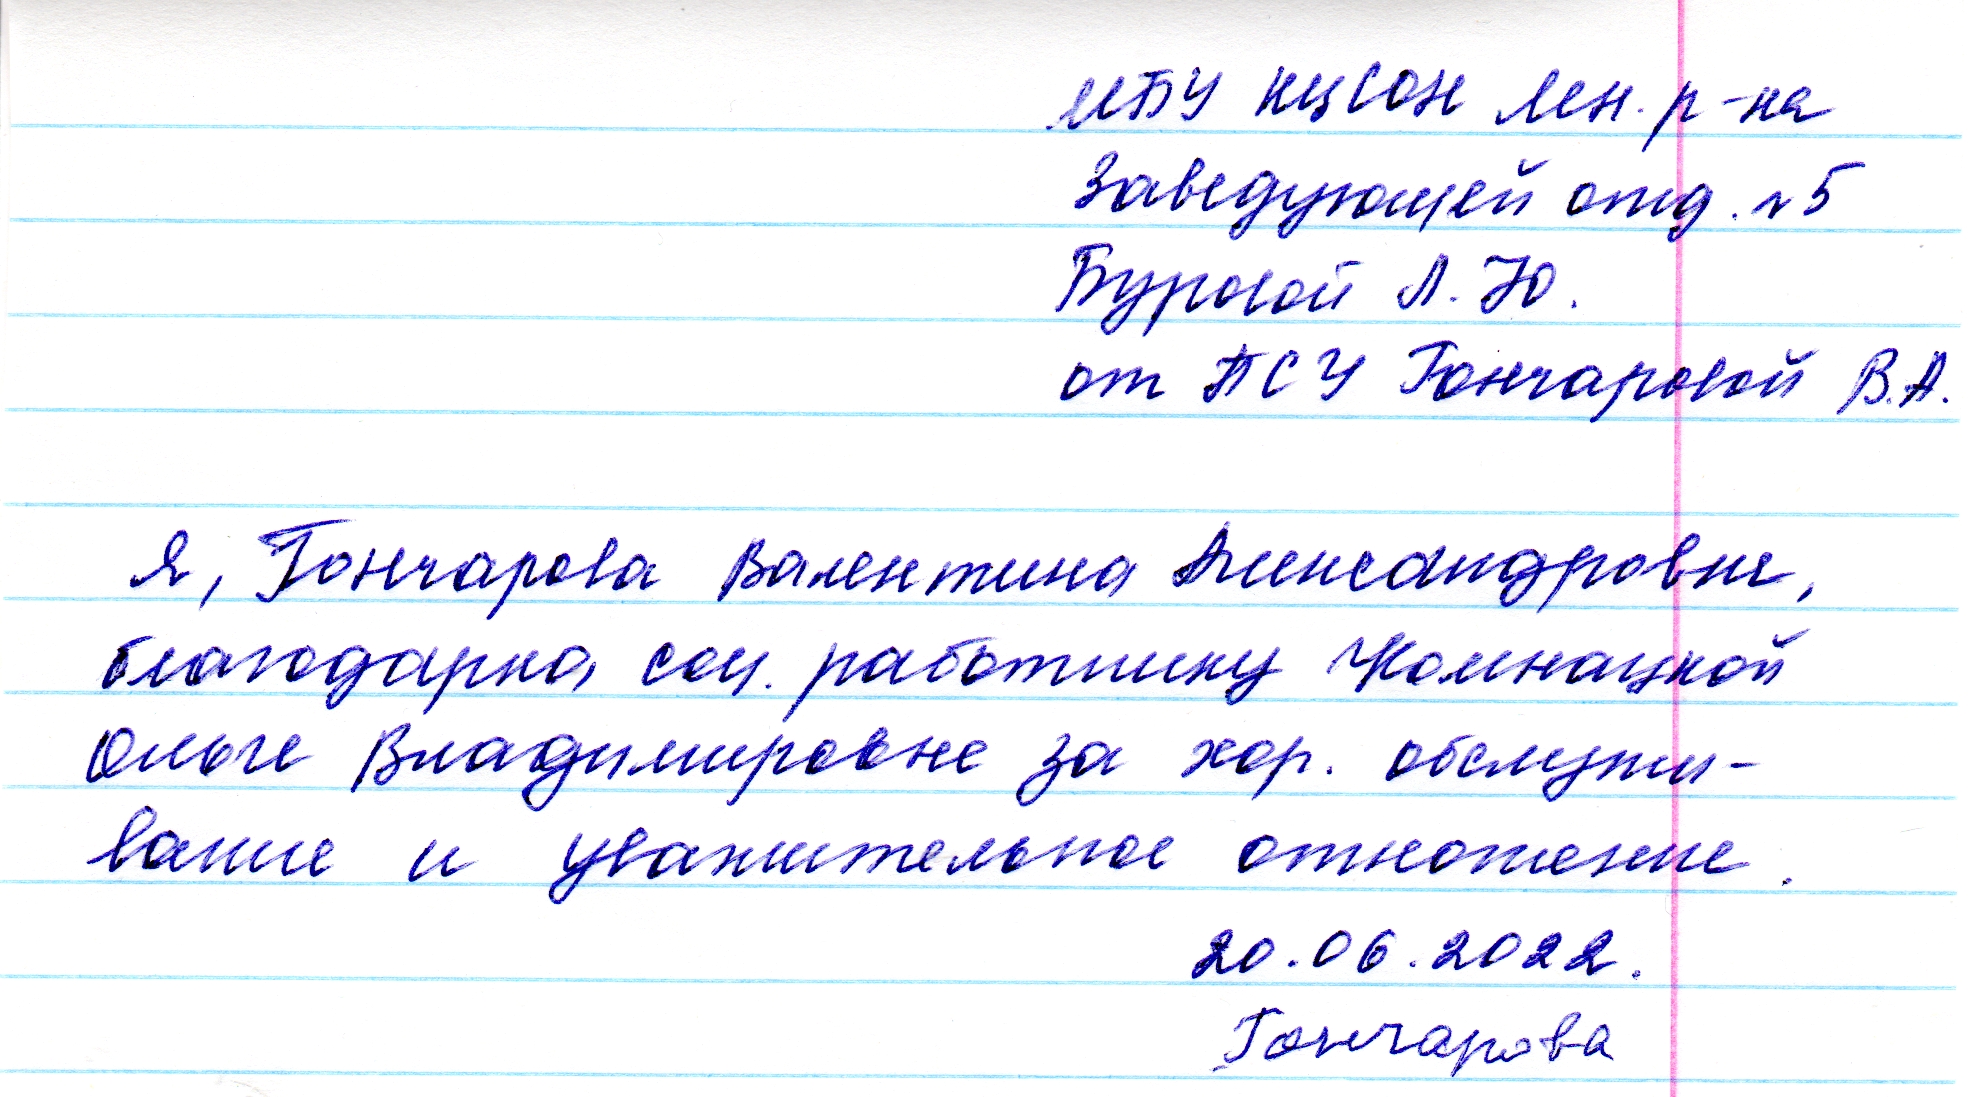 МБУ КЦСОН Лен. р-на
Заведующей отд. №5
Буровой Л.Ю.
от ПСУ Гончаровой В.А.
Я, Гончарова Валентина Александровна,
благодарна соц. работнику Комнацкой
Ольге Владимировне за хор. обслужи-
вание и уважительное отношение.
20.06.2022.
Гончарова